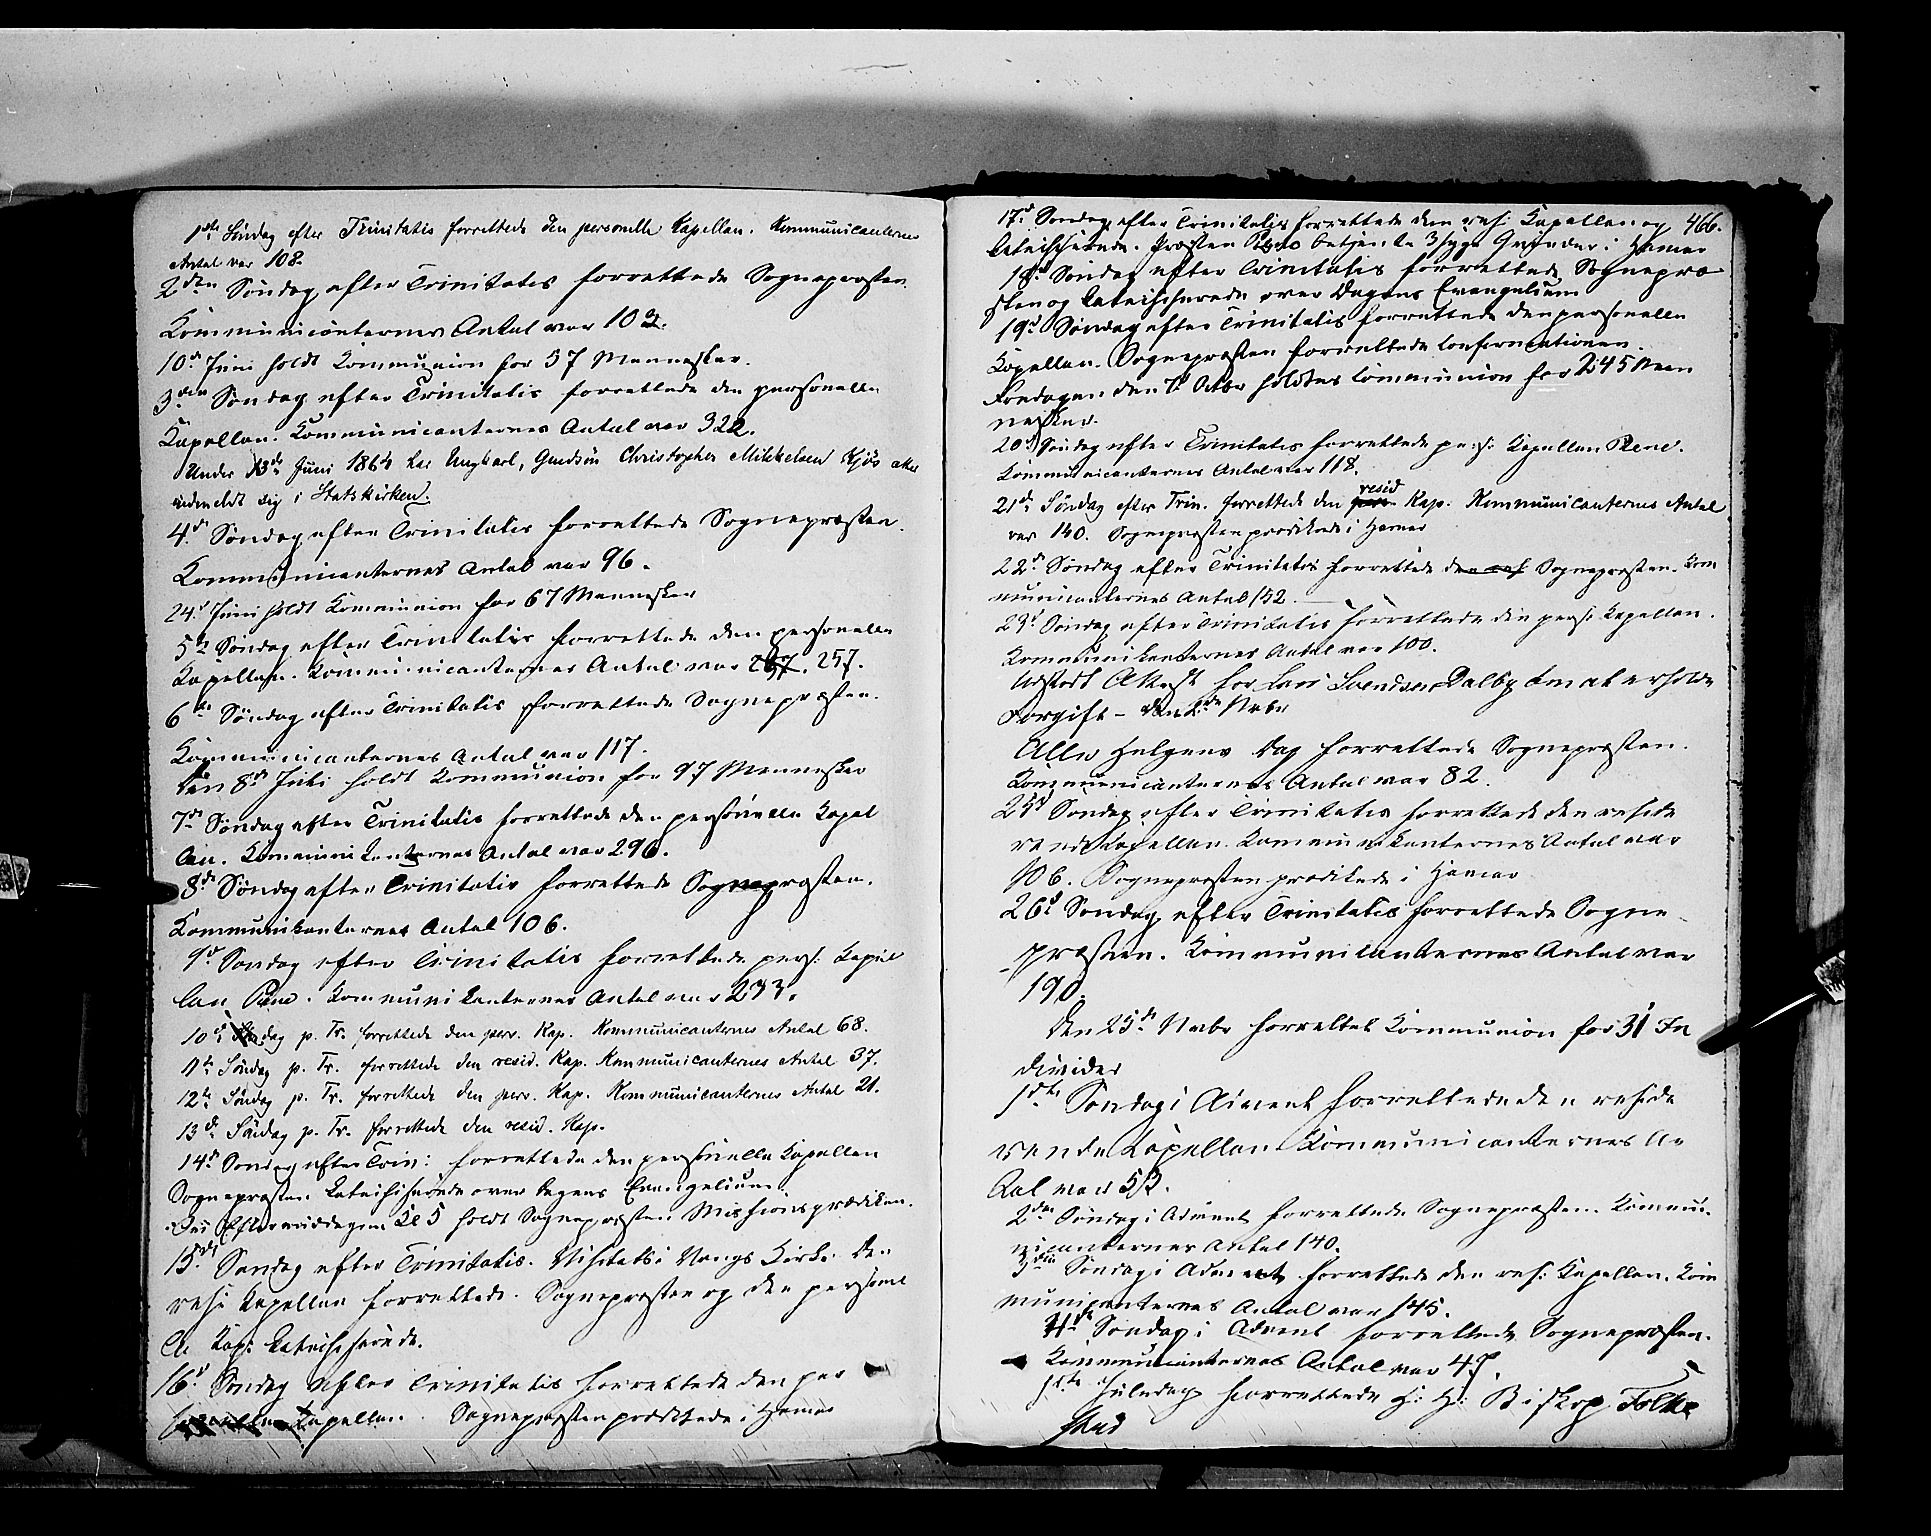 1ste Søndag efter Trinitatis forrettede den personelle Kapellan. Kommunicanternes
Antal var 108.
2den Søndag efter Trinitatis forrettede Sognepræsten.
Kommunicanternes Antal var 103.
10d Juni holdt Kommunion for 37 Mennesker.
3die Søndag efter Trinitatis forrettede den personelle
Kapellan. Kommunicanternes Antal var 322.
Under 13de Juni 1864 har Ungkarl, Christopher Mikkelsen
indmeldt sig i Statskirken.
4d Søndag efter Trinitatis forrettede Sognepræsten.
Kommunicanternes Antal var 96.
24d Juni holdt Kommunion for 67 Mennesker
5te Søndag efter Trinitatis forrettede den personelle
Kapellan. Kommunicanternes Antal var 257.
6te Søndag efter Trinitatis forrettede Sognepræsten.
Kommunicanternes Antal var 117.
Den 8d Juli holdt Kommunion for 97 Mennesker
7de Søndag efter Trinitatis forrettede den personelle Kapel
lan. Kommunikanternes Antal var 296.
8de Søndag efter Trinitatis forrettede Sognepræsten.
Kommunikanternes Antal 106.
9d Søndag efter Trinitatis forrettede pers: Kapel
lan. Kommunikanternes Antal var 233.
10d Søndag p. Tr. forrettede den pers. Kap. Kommunicanternes Antal 68.
11te Søndag p. Tr. forrettede den resid. Kap. Kommunicanternes Antal 37.
12te Søndag p. Tr. forrettede den pers. Kap. Kommunicanternes Antal 21.
13de Søndag p. Tr. forrettede den resid. Kap.
14d Søndag efter Trin: forrettede den personelle Kapellan
Sognepræsten katechiserede over Dagens Evangelium.
Om Eftermiddagen Kl 5 holdt Sognepræsten Missionsprædiken.
15de Søndag efter Trinitatis. Visitats i Vangs Kirke. Den
resi: Kapellan forrettede. Sognepræsten og den personel
le Kap: katechiserede.
16d Søndag efter Trinitatis forrettede den per
Kapellan. Sognepræsten prædikede i Hamar
17d Søndag efter Trinitatis forrettede den res: Kapellan og 466.
katechiserede. Præsten betjente 3 syge Qvinder i Hamar
18d Søndag efter Trinitatis forrettede Sognepræ
sten og katechiserede over Dagens Evangelium
19d Søndag efter Trinitatis forrettede den personelle
Kapellan. Sognepræsten forrettede Confirmationen.
Fredagen den 7d Octbr holdtes Communion for 245 Men
nesker.
20d Søndag efter Trinitatis forrettede pers: Kapellan
Kommunicanternes Antal var 118.
21de Søndag efter Trin. forrettede den resid Kap. Kommunicanternes Antal
var 140. Sognepræsten prædikede i Hamar
22de Søndag efter Trinitatis forrettede den res Sognepræsten. Kom
municanternes Antal 152.
23d Søndag efter Trinitatis forrettede den pers: Kapellan.
Kommunikanternes Antal var 100.
Udstedt Attest for Lars Svendsen Dalby om at erholde
Forgift - den 2den Novbr
Alle Helgens Dag forrettede Sognepræsten.
Kommunicanternes Antal var 82.
25d Søndag efter Trinitatis forrettede den reside
rende Kapellan. Kommunikanternes Antal var
106. Sognepræsten prædikede i Hamar
26d Søndag efter Trinitatis forrettede Sogne
præsten. Kommunikanternes Antal var
190.
Den 25de Novbr forrettet Kommunion for 31 In
divider
1ste Søndag i Advent forrettede den reside
rende Kapellan Kommunicanternes An
tal var 53.
2den Søndag i Advent forrettede Sognepræsten. Kommu-
nicanternes Antal 140.
3die Søndag i Advent forrettede den res: Kapellan. Kom
municanternes Antal var 145.
4de Søndag i Advent forrettede Sognepræsten.
Kommunicanternes Antal var 47.
1ste Juledag forrettede H: H: Biskop Folke
stad